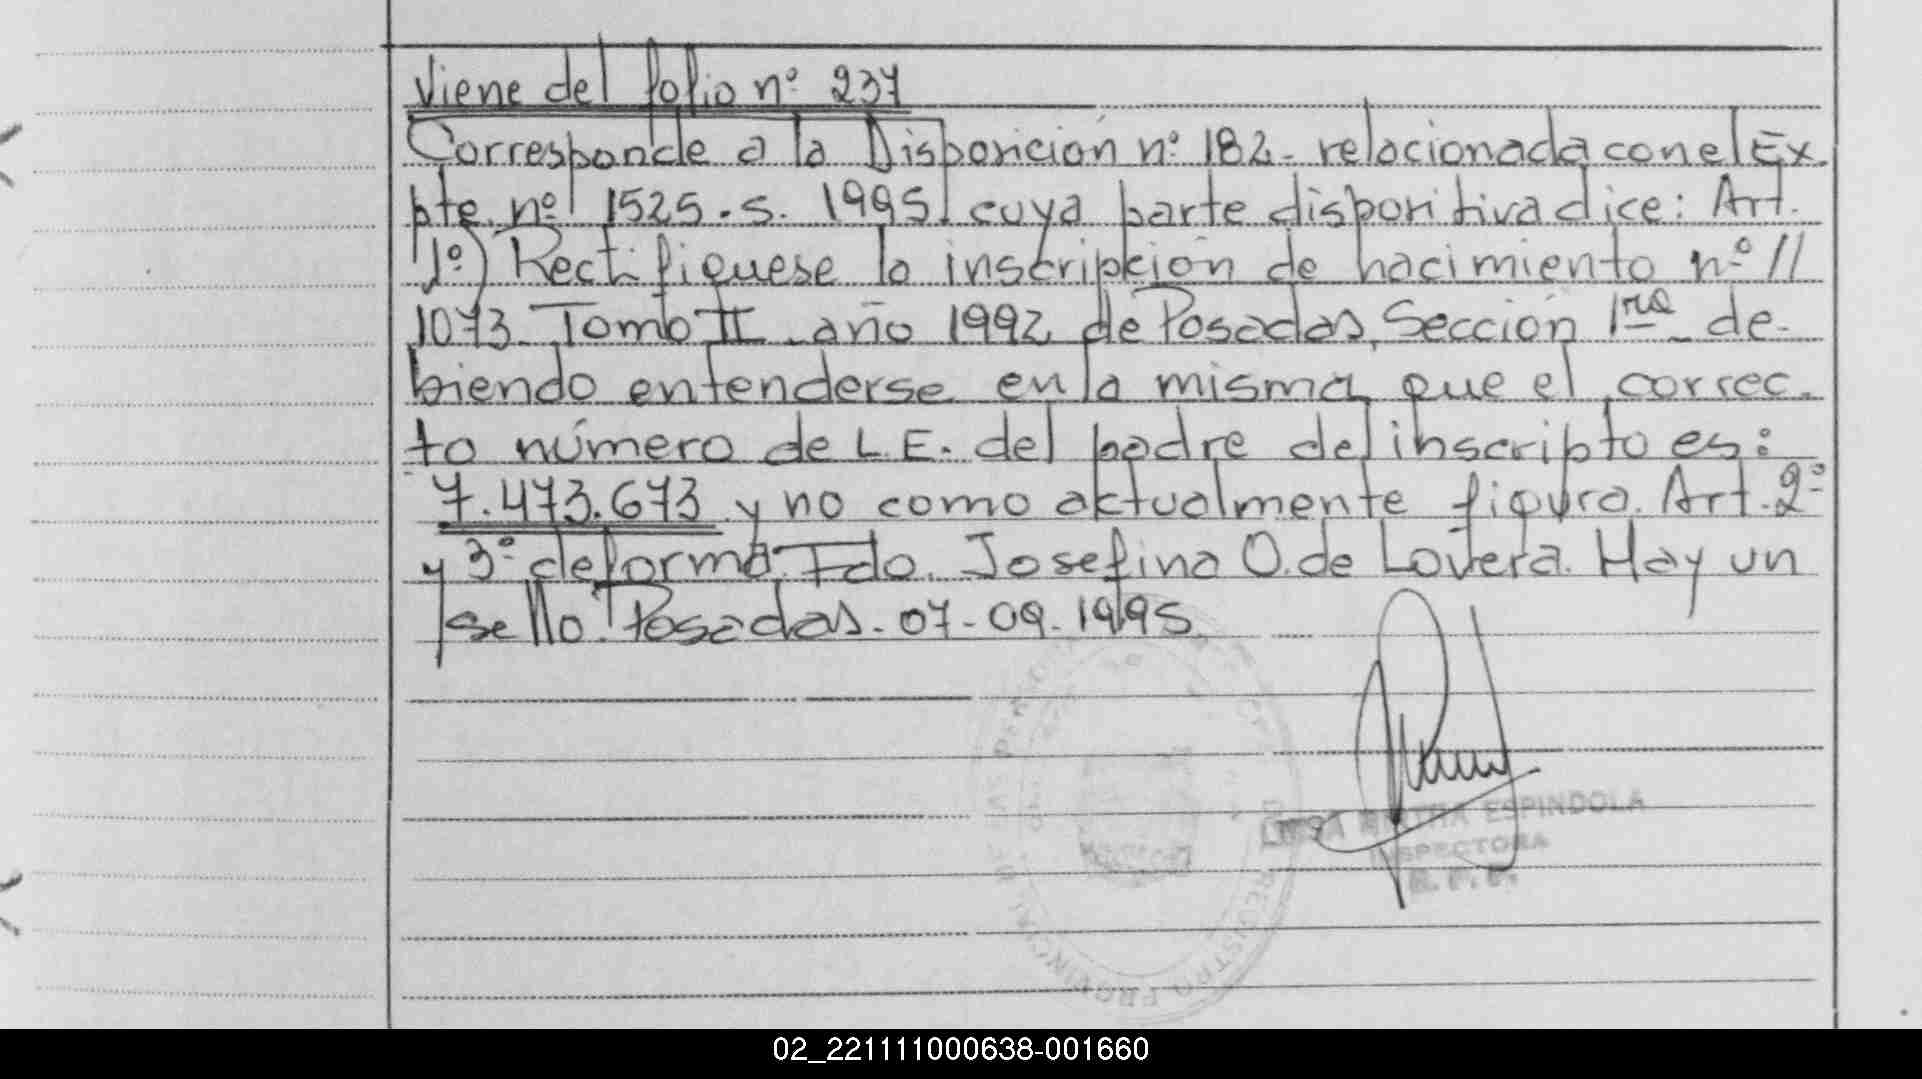 Viene del folio nº 237
Corresponde a la Disposición nº 182- relacionada con el Ex.
pte. nº 1525.S. 1995. cuya parte dispositiva dice: Art.
1º) Rectifíquese la inscripción de nacimiento nº //
1073. Tomo II. año 1992 de Posadas, Sección 1ra - de-
biendo entenderse en la misma que el correc-
to número de L.E. del padre del inscripto es:
7.473.673 y no como aktualmente figura. Art. 2º
y 3º de forma. Fdo. Josefina O. de Lovera. Hay un
sello. Posadas. 07-09-1995
ESPINDOLA
INSPECTORA
R. P. P.
REGISTRO PROVINCIAL DE LAS PERSONAS
02_221111000638-001660